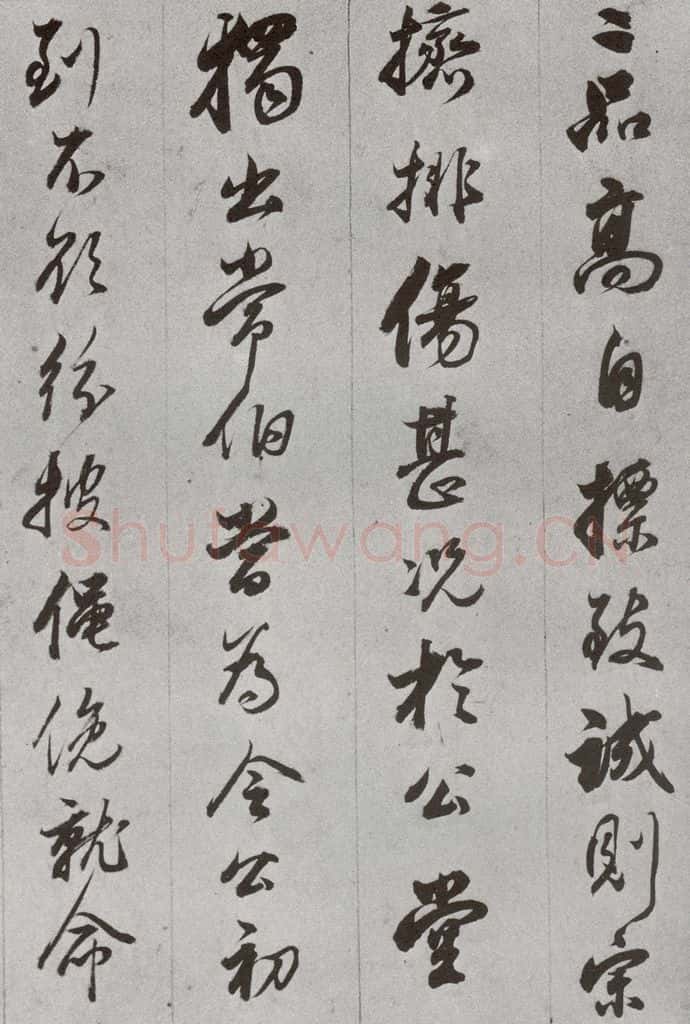 二品高自標致誠則宗
擠排傷甚況於公堂
獨出常伯嘗為令公初
到不欲披僶俛就命
Shufawang.CN